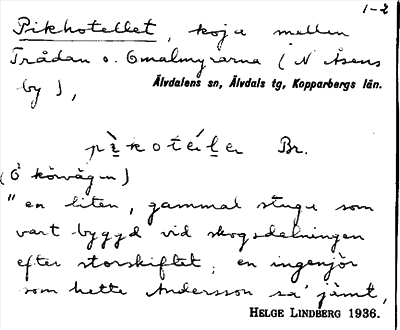 1-2
Pikhotellet, koja mellan
Trådan o. Omalmyrarna (N Åsens
by),
Älvdalens sn, Älvdals tg, Kopparbergs län.
Br.
(Ö körvägen)
"en liten, gammal stuga som
vart byggd vid skogsdelningen
efter storskiftet; en ingenjör
som hette Andersson sa' jämt,
HELGE LINDBERG 1936.